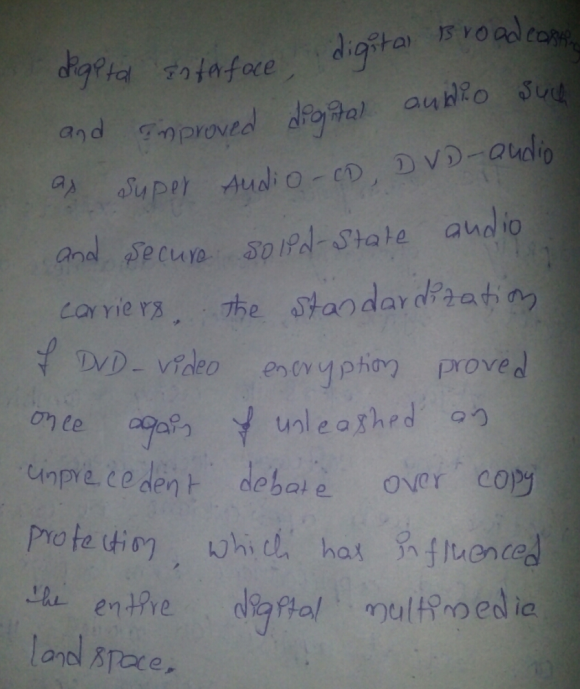 digital interface, digital Broadcasting
and improved digital audio such
as super Audio-CD, DVD-audio
and secure solid-state audio
carriers. The standardization
of DVD-video encryption proved
once again & unleashed an
unprecedent debate over copy
protection, which has influenced
the entire digital multimedia
landspace.